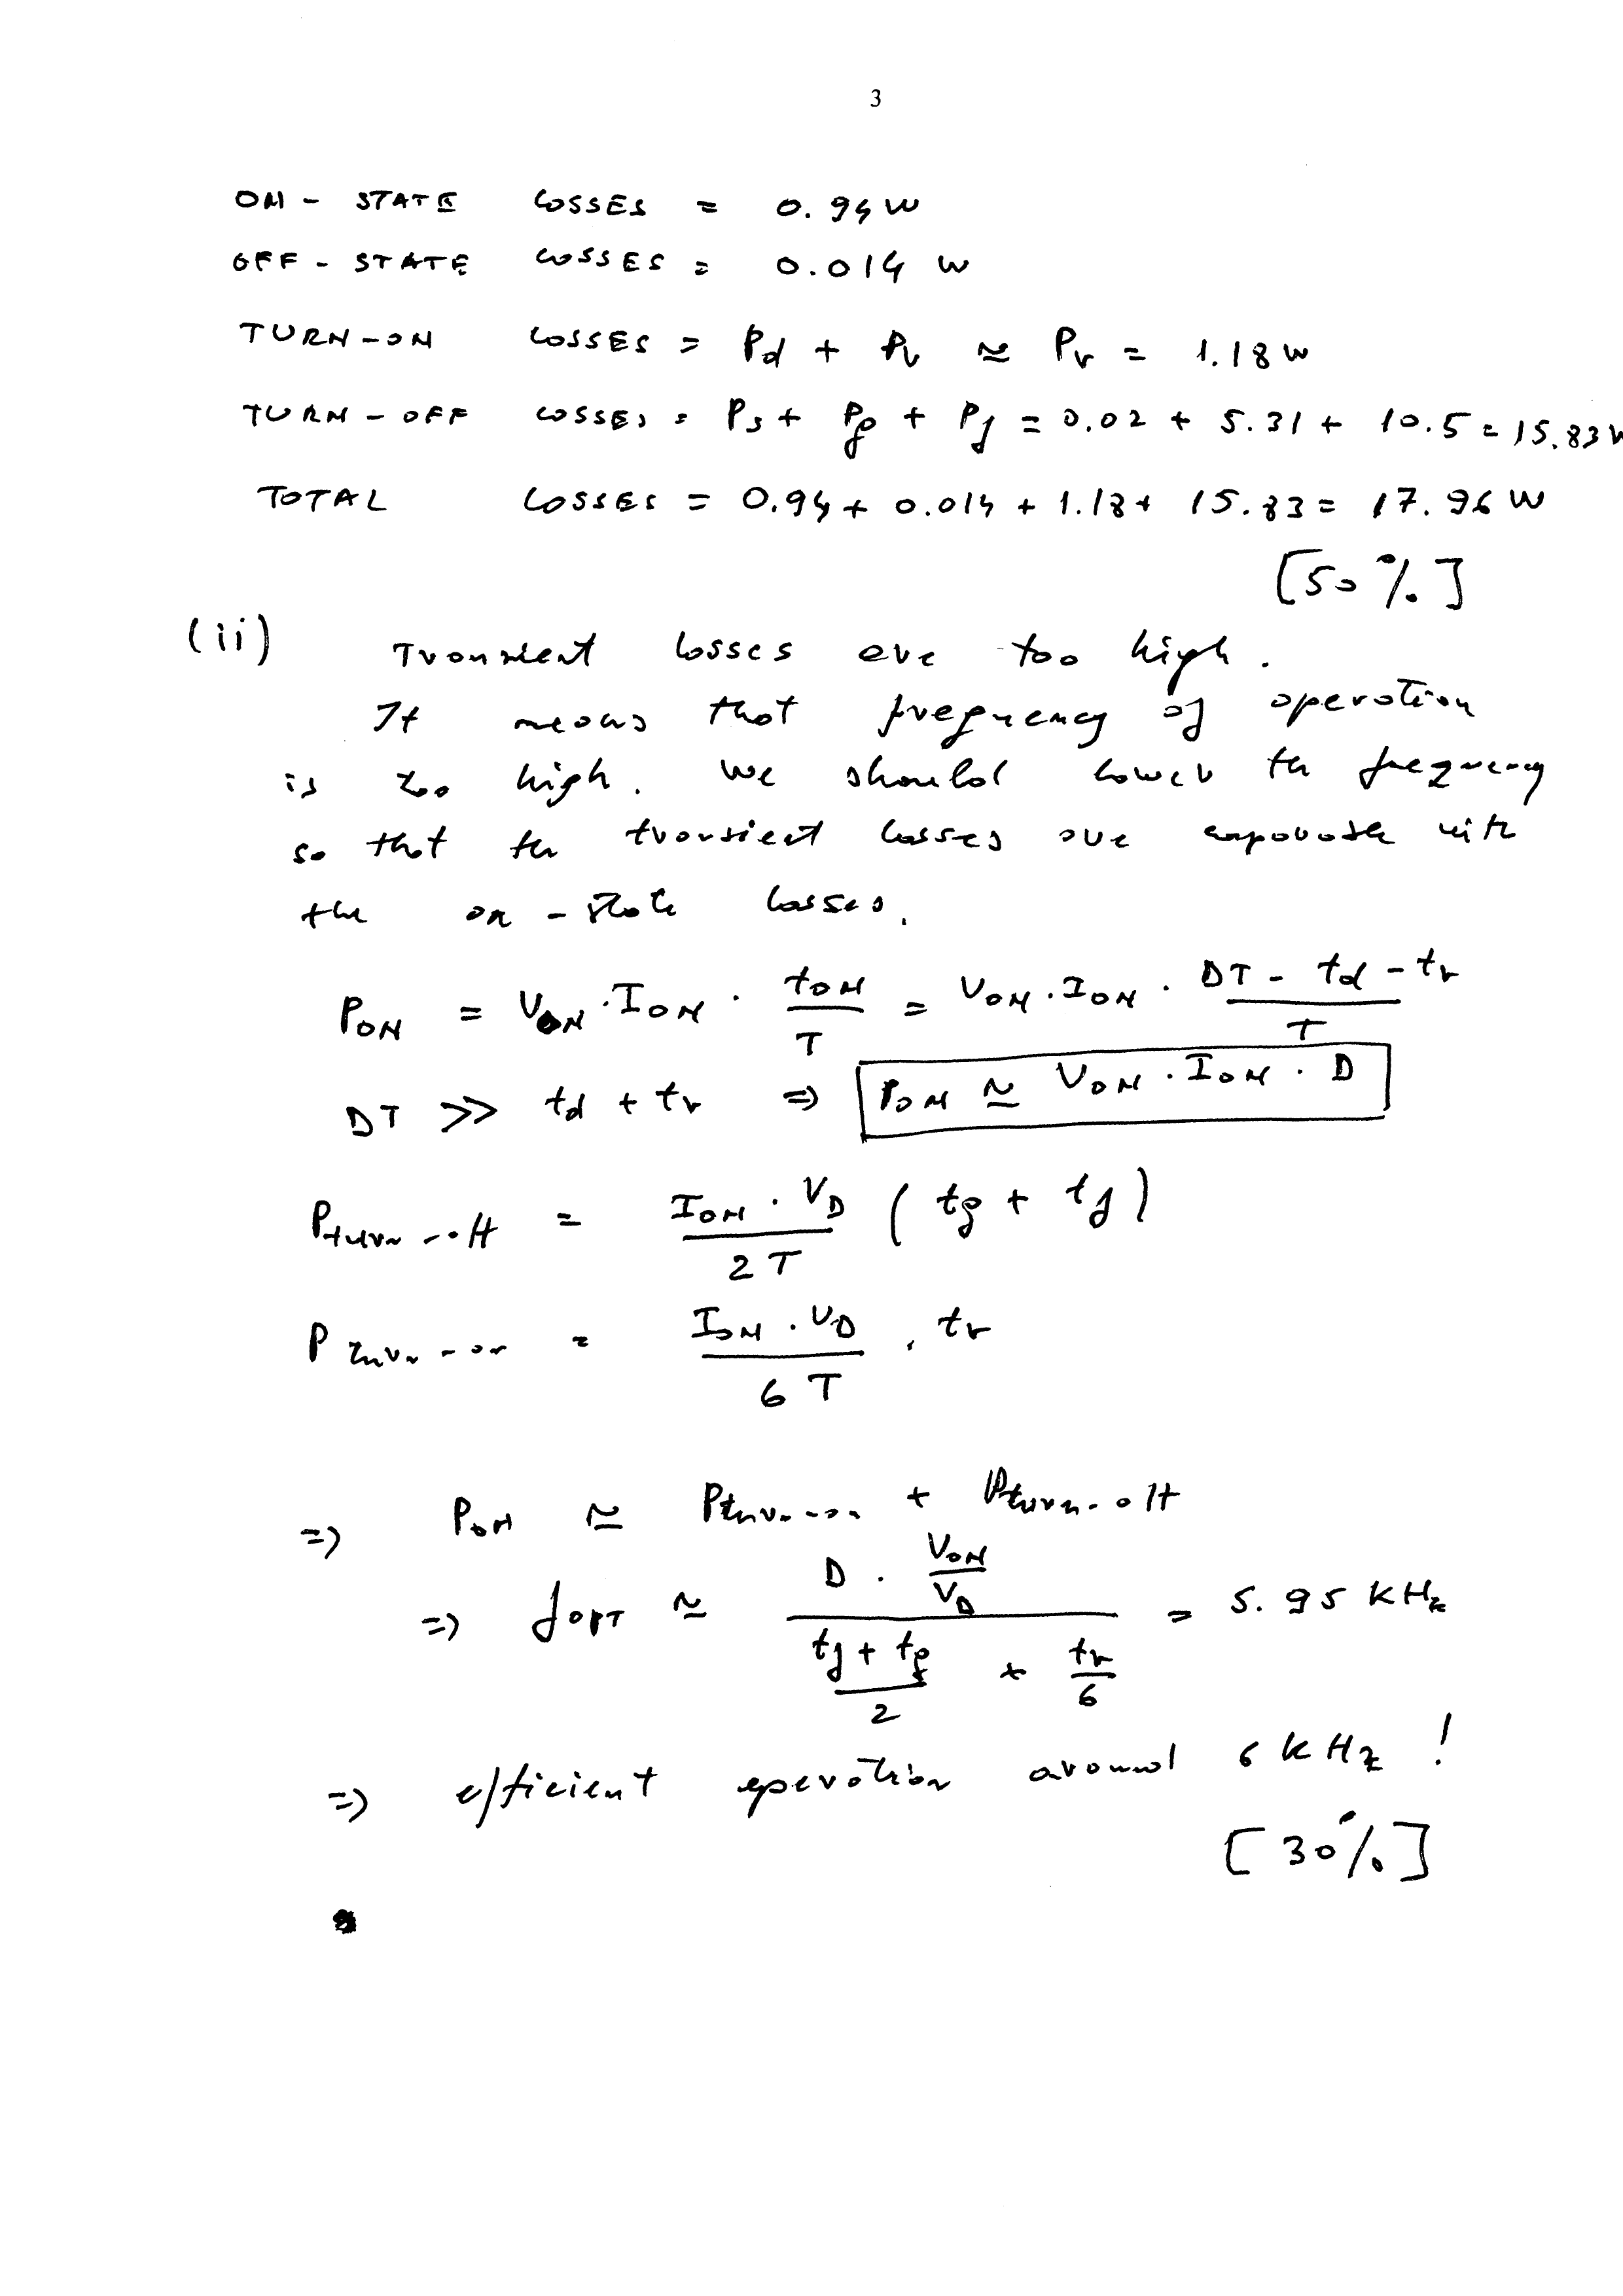 3
ON - STATE LOSSES = 0.94 W
OFF - STATE LOSSES = 0.014 W
TURN-ON LOSSES = Pd + Pr ≃ Pr = 1.18 W
TURN - OFF LOSSES = Ps + Pg + Pf = 0.02 + 5.31 + 10.5 = 15.83 W
TOTAL LOSSES = 0.94 + 0.014 + 1.18 + 15.83 = 17.96 W
[50%]
(ii) Transient losses are too high.
It means that frequency of operation
is too high. We should lower the frequency
so that the transient losses are comparable with
the on-state losses.
PON = VON · ION · tON / T = VON · ION · (DT - td - tr) / T
DT >> td + tr => PON ≃ VON · ION · D
Pturn-off = ION · VD / 2T (tg + tf)
Pturn-on = ION · VD / 6T · tr
=> PON ≃ Pturn-on + Pturn-off
=> fOPT ≃ (D · VON / VD) / ((tf + tg) / 2 + tr / 6) = 5.95 KHz
=> efficient operation around 6 KHz !
[30%]